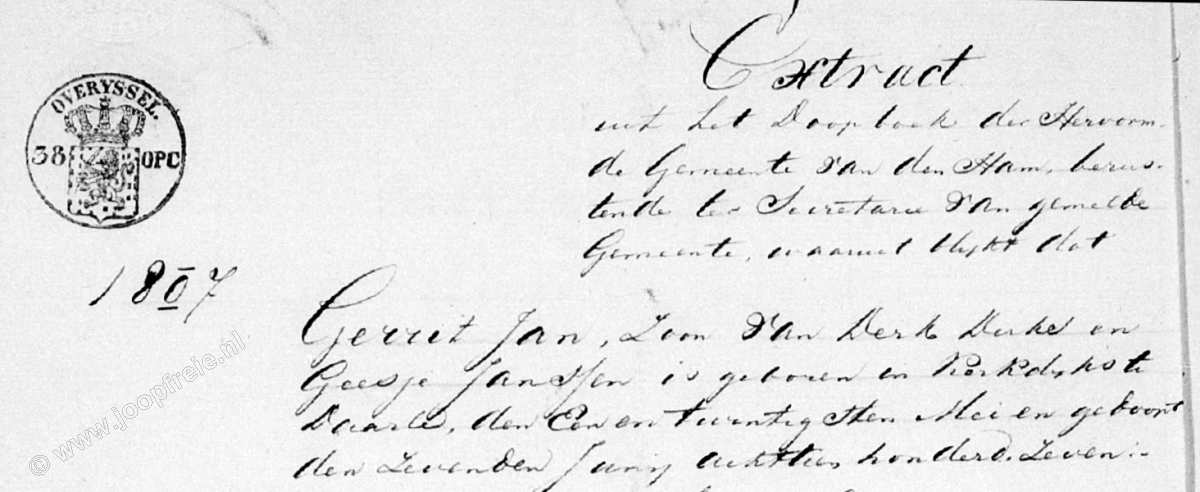 OVERYSSEL.
38 OPC
1807
Extract
uit het Doopboek der Hervorm-
de Gemeente van den Ham, berus-
tende ter Secretarie van gemelde
Gemeente, waaruit blijkt dat
Gerrit Jan, Zoon van Derk Derks en
Geesje Janssen is geboren en te
Daarle, den Een en twintigsten Mei en gedoopt
den Zevenden Junij achttien honderd Zeven:-
© www.joopfreie.nl